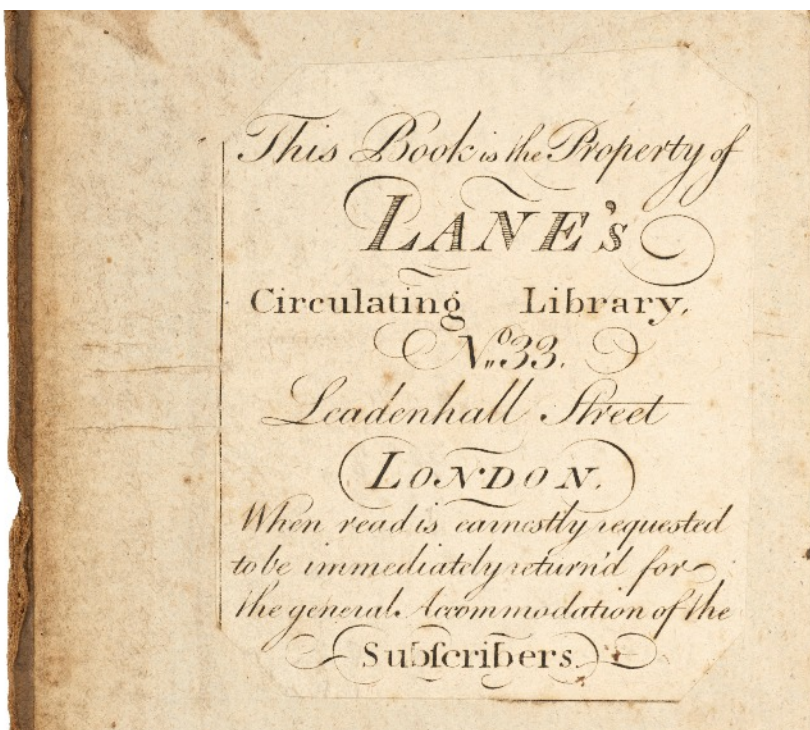 This Book is the Property of
LANE's
Circulating Library,
No. 33.
Leadenhall Street
LONDON.
When read is earnestly requested
to be immediately return'd for
the general Accommodation of the
Subſcribers.